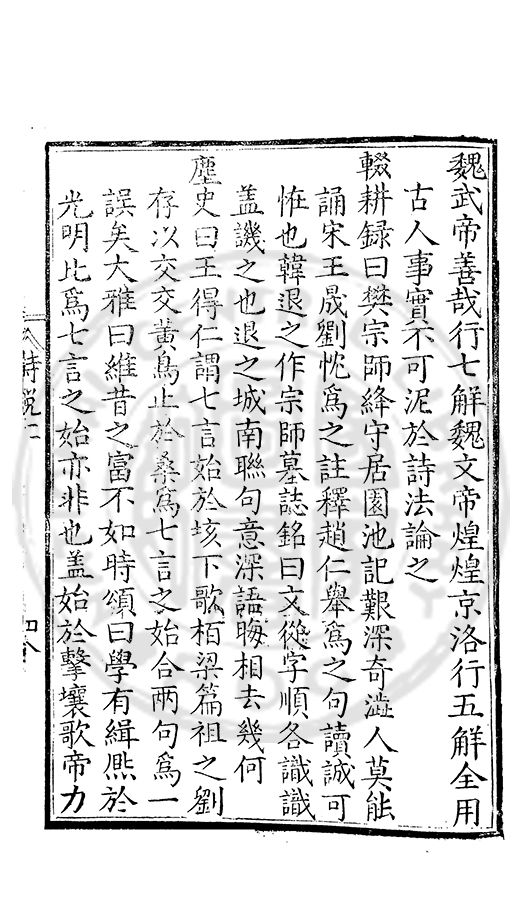 魏武帝善哉行七解魏文帝煌煌京洛行五解全用
古人事實不可泥於詩法論之
輟耕録曰樊宗師絳守居園池記艱深奇澁人莫能
誦宋王晟劉忱爲之註釋趙仁舉爲之句讀誠可
恠也韓退之作宗師墓誌銘曰文從字順各識識
盖譏之也退之城南聯句意深語晦相去幾何
麈史曰王得仁謂七言始於垓下歌栢梁篇祖之劉
存以交交黃鳥止於桑爲七言之始合兩句爲一
誤矣大雅曰維昔之富不如時頌曰學有緝熈於
光明比爲七言之始亦非也盖始於擊壤歌帝力